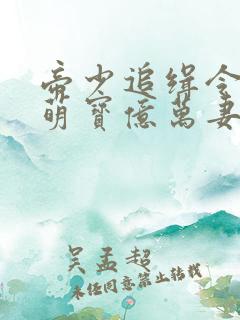 帝少追缉令
萌寳億萬妻
吴孟超
未经同意禁止转载